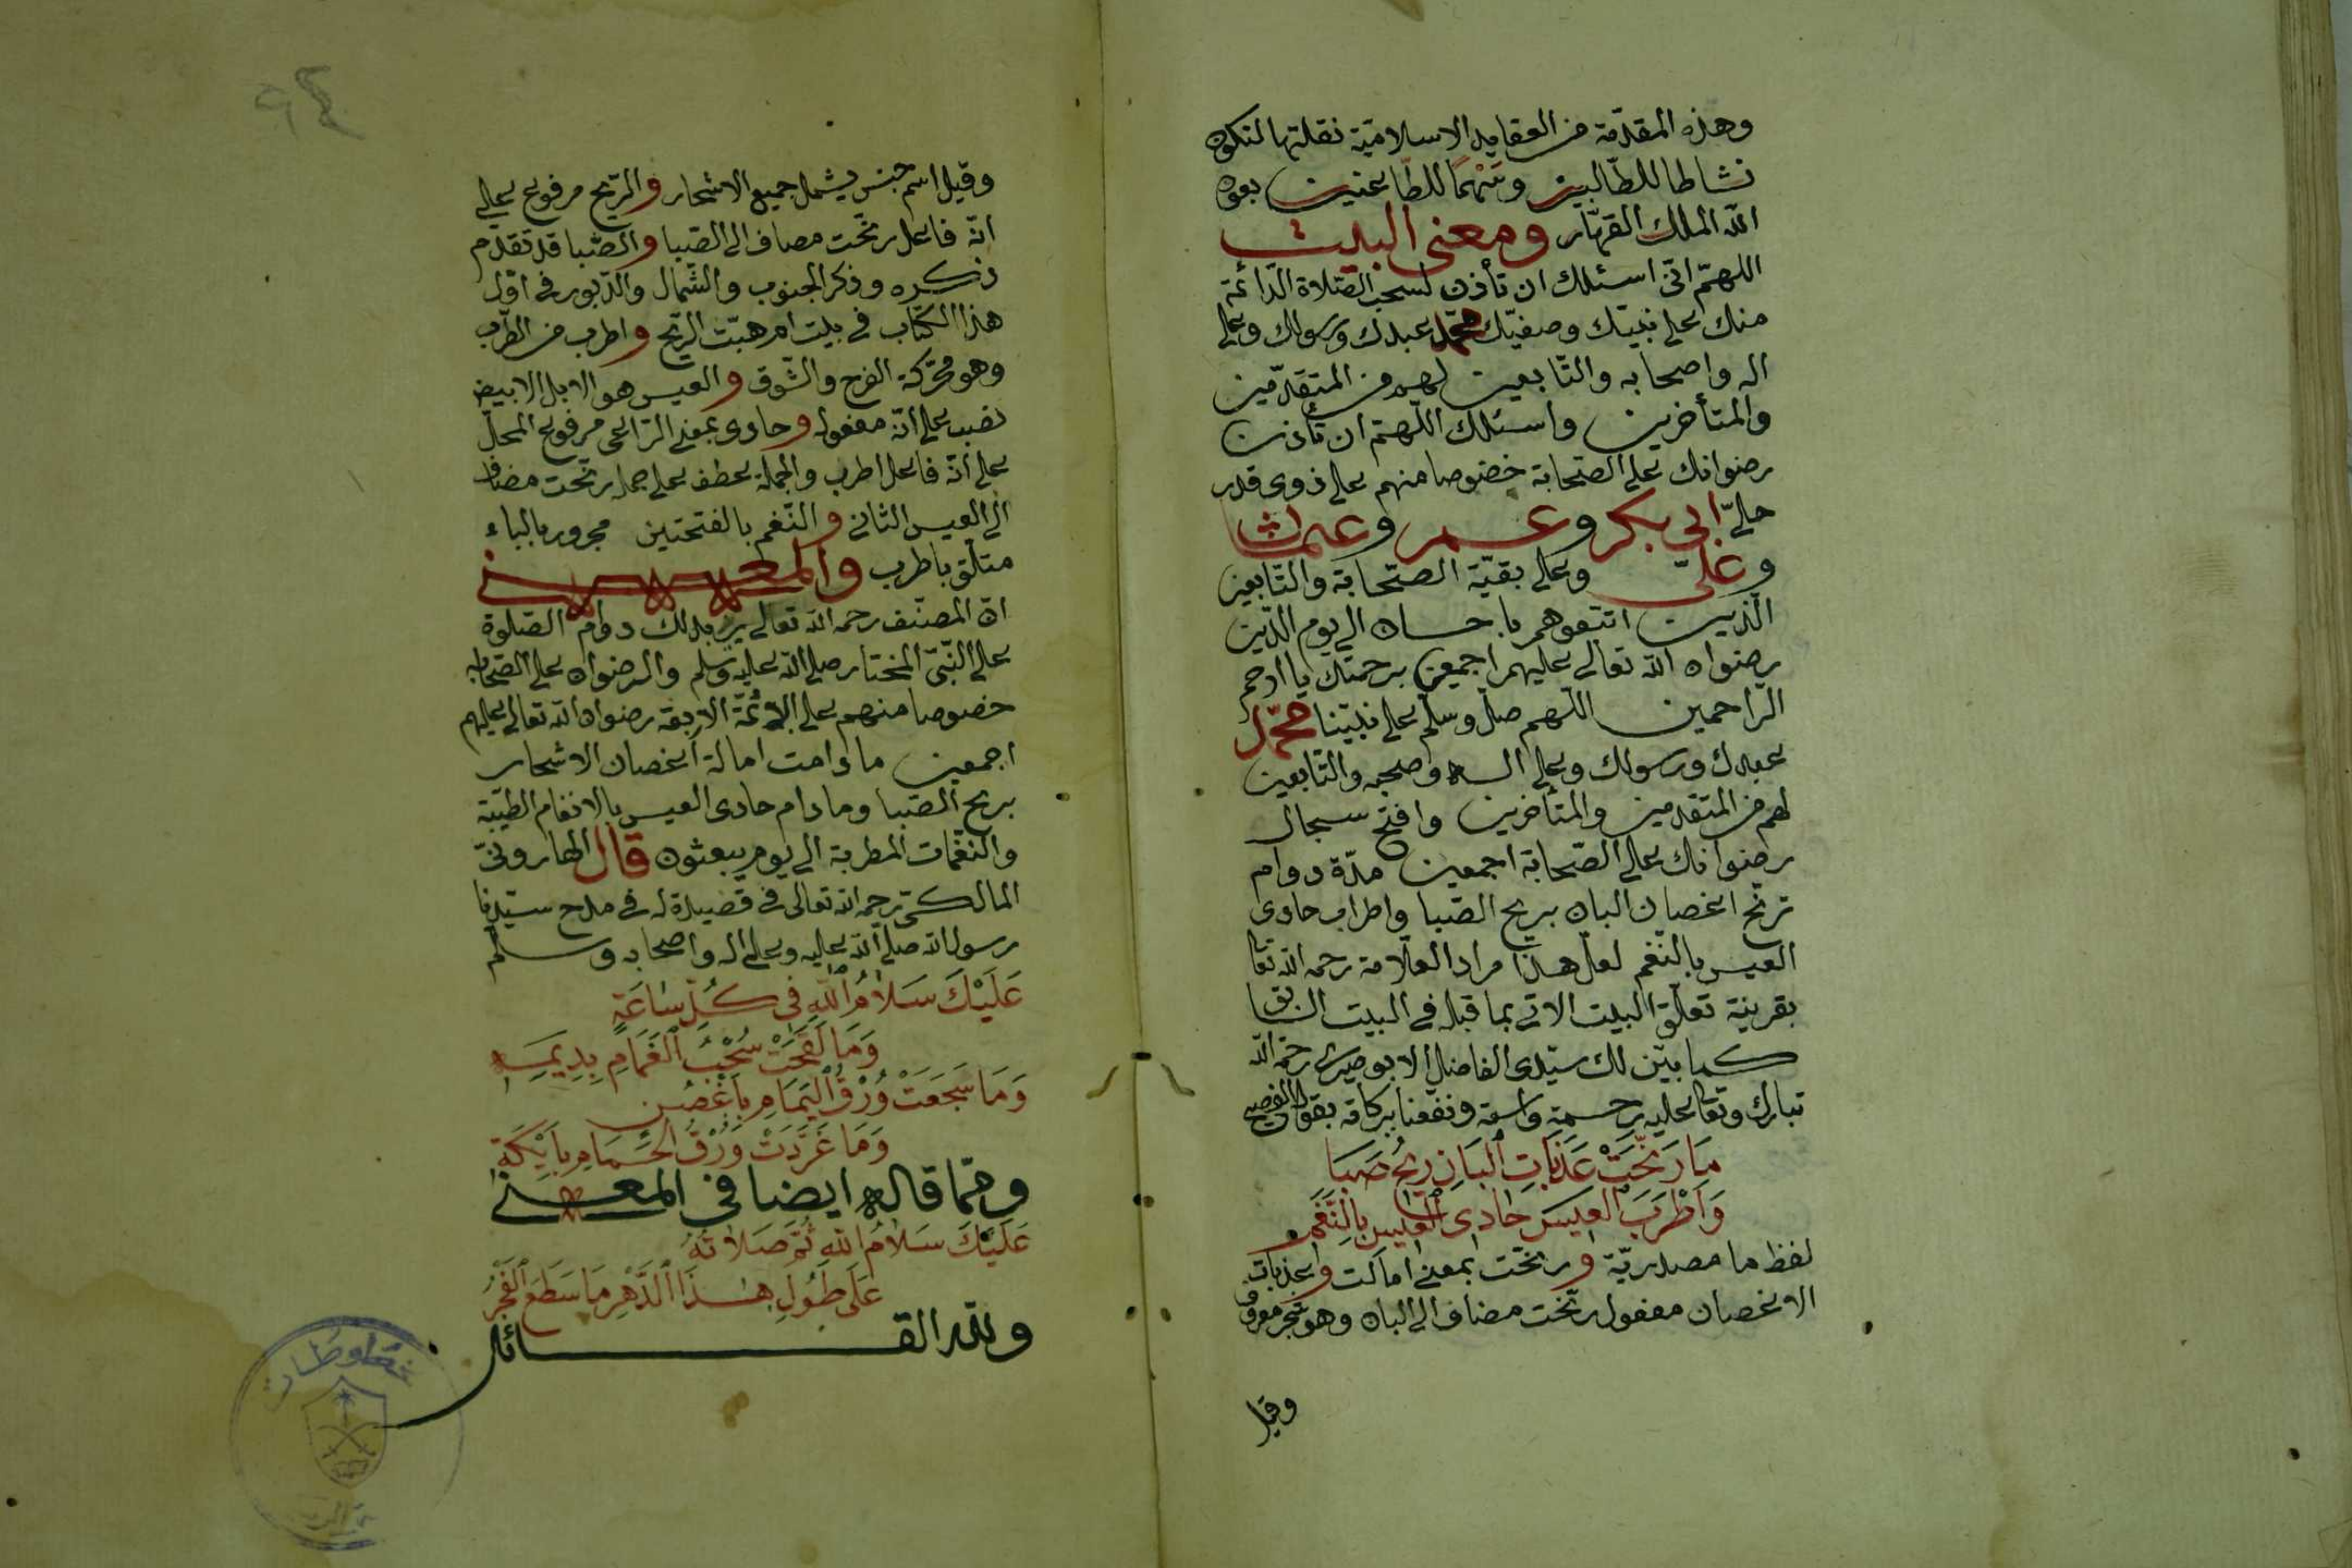 وهذه المقدّمة من العقايد الاسلاميّة نقلتها لتكون
نشاطا للطّالبين وسَهْمًا للطّاعنين بعون
الله الملك القهّار ومعنى البيت
اللهمّ انّى اسئلك ان تأذن لسحب الصّلاة الدّائمة
منك على نبيّك وصفيّك محمّد عبدك ورسولك وعلى
اله واصحابه والتّابعين لهم من المتقدّمين
والمتأخرين واسئلك اللّهمّ ان تأذن
رضوانك على الصّحابة خصوصا منهم على ذوى قدر
جليّ ابي بكر وعمر وعثمان
وعليّ وعلى بقيّة الصّحابة والتّابعين
الّذين اتّبعوهم باحسان الى يوم الدّين
رضوان الله تعالى عليهم اجمعين برحمتك يا ارحم
الرّاحمين اللّهم صلّ وسلّم على نبيّنا محمّد
عبدك ورسولك وعلى اله وصحبه والتّابعين
لهم من المتقدمين والمتأخرين وافتح سجال
رضوانك على الصّحابة اجمعين مدّة دوام
ترنّح اغصان البان بريح الصّبا واطراب حادى
العيس بالنّغم لعلّ هذا مراد العلّامة رحمه الله تعا
بقرينة تعلّق البيت الاتى بما قبله في البيت السابق
كما بيّن لك سيّدى الفاضل الابوصيرى رحمة الله
تبارك وتعا عليه رحمة واسعة ونفعنا ببركاته بقوله الفصيح
مَا رَنَّحَتْ عَذَبَاتِ الْبَانِ رِيْحُ صَبَا
وَاَطْرَبَ الْعِيسَ حَادِى الْعِيسِ بِالنَّغَمِ
لفظ ما مصدريّة ورنّحت بمعنى امالت وعذبات
الاغصان مفعول رنّحت مضاف الى البان وهو شجر معروف
وقيل
٩٤
وقيل اسم جنس يشمل جميع الاشجار والرّيح مرفوع على
انّه فاعل رنّحت مضاف الى الصّبا والصّبا قد تقدّم
ذكره وذكر الجنوب والشّمال والدّبور في اوّل
هذا الكتاب في بيت ام هبّت الرّيح واطرب من الطّرب
وهو محرّكة الفرح والشّوق والعيس هو الابل الابيض
نصب على انّه مفعول وحادى بمعنى الرّاعى مرفوع المحلّ
على انّه فاعل اطرب والجملة عطف على جملة رنّحت مضاف
الى العيس الثانى والنّغم بالفتحتين مجرور بالباء
متلّق باطرب والمعنى
انّ المصنّف رحمه الله تعالى يريد بذلك دوام الصّلوة
على النّبيّ المختار صلى الله عليه وسلم والرضوان على الصّحابة
خصوصا منهم على الائمّة الاربعة رضوان الله تعالى عليهم
اجمعين ما دامت امالة اغصان الاشجار
بريح الصّبا وما دام حادى العيس بالانغام الطيّبة
والنّغمات المطربة الى يوم يبعثون قال الهارونىّ
المالكىّ رحمه الله تعالى في قصيدة له في مدح سيّدنا
رسول الله صلى الله عليه وعلى اله واصحابه وسلّم
عَلَيْكَ سَلَامُ اللهِ فِى كُلِّ سَاعَةٍ
وَمَا لَقَّحَتْ سُحْبُ الْغَمَامِ بِدِيمَةٍ
وَمَا سَجَعَتْ وُرْقُ الْيَمَامِ بِاَغْصُنٍ
وَمَا غَرَّدَتْ وُرْقُ الْحَمَامِ بِاَيْكَةٍ
وممّا قاله ايضا في المعنى
عَلَيْكَ سَلَامُ اللهِ ثُمَّ صَلَاتُهُ
عَلَى طُولِ هٰذَا الدَّهْرِ مَا سَطَعَ الْفَجْرُ
ولله در القائل
مخطوطات